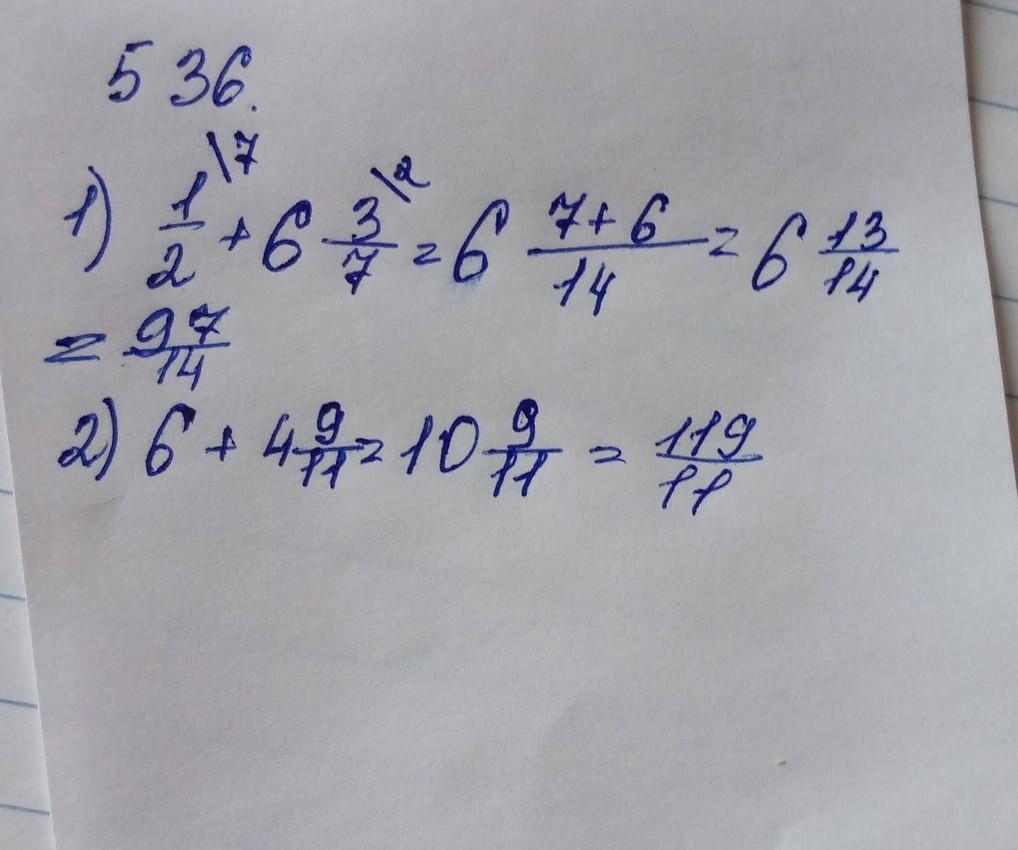 536.
1) 1/2 \7 + 6 3/7 \2 = 6 7+6/14 = 6 13/14
= 97/14
2) 6 + 4 9/11 = 10 9/11 = 119/11